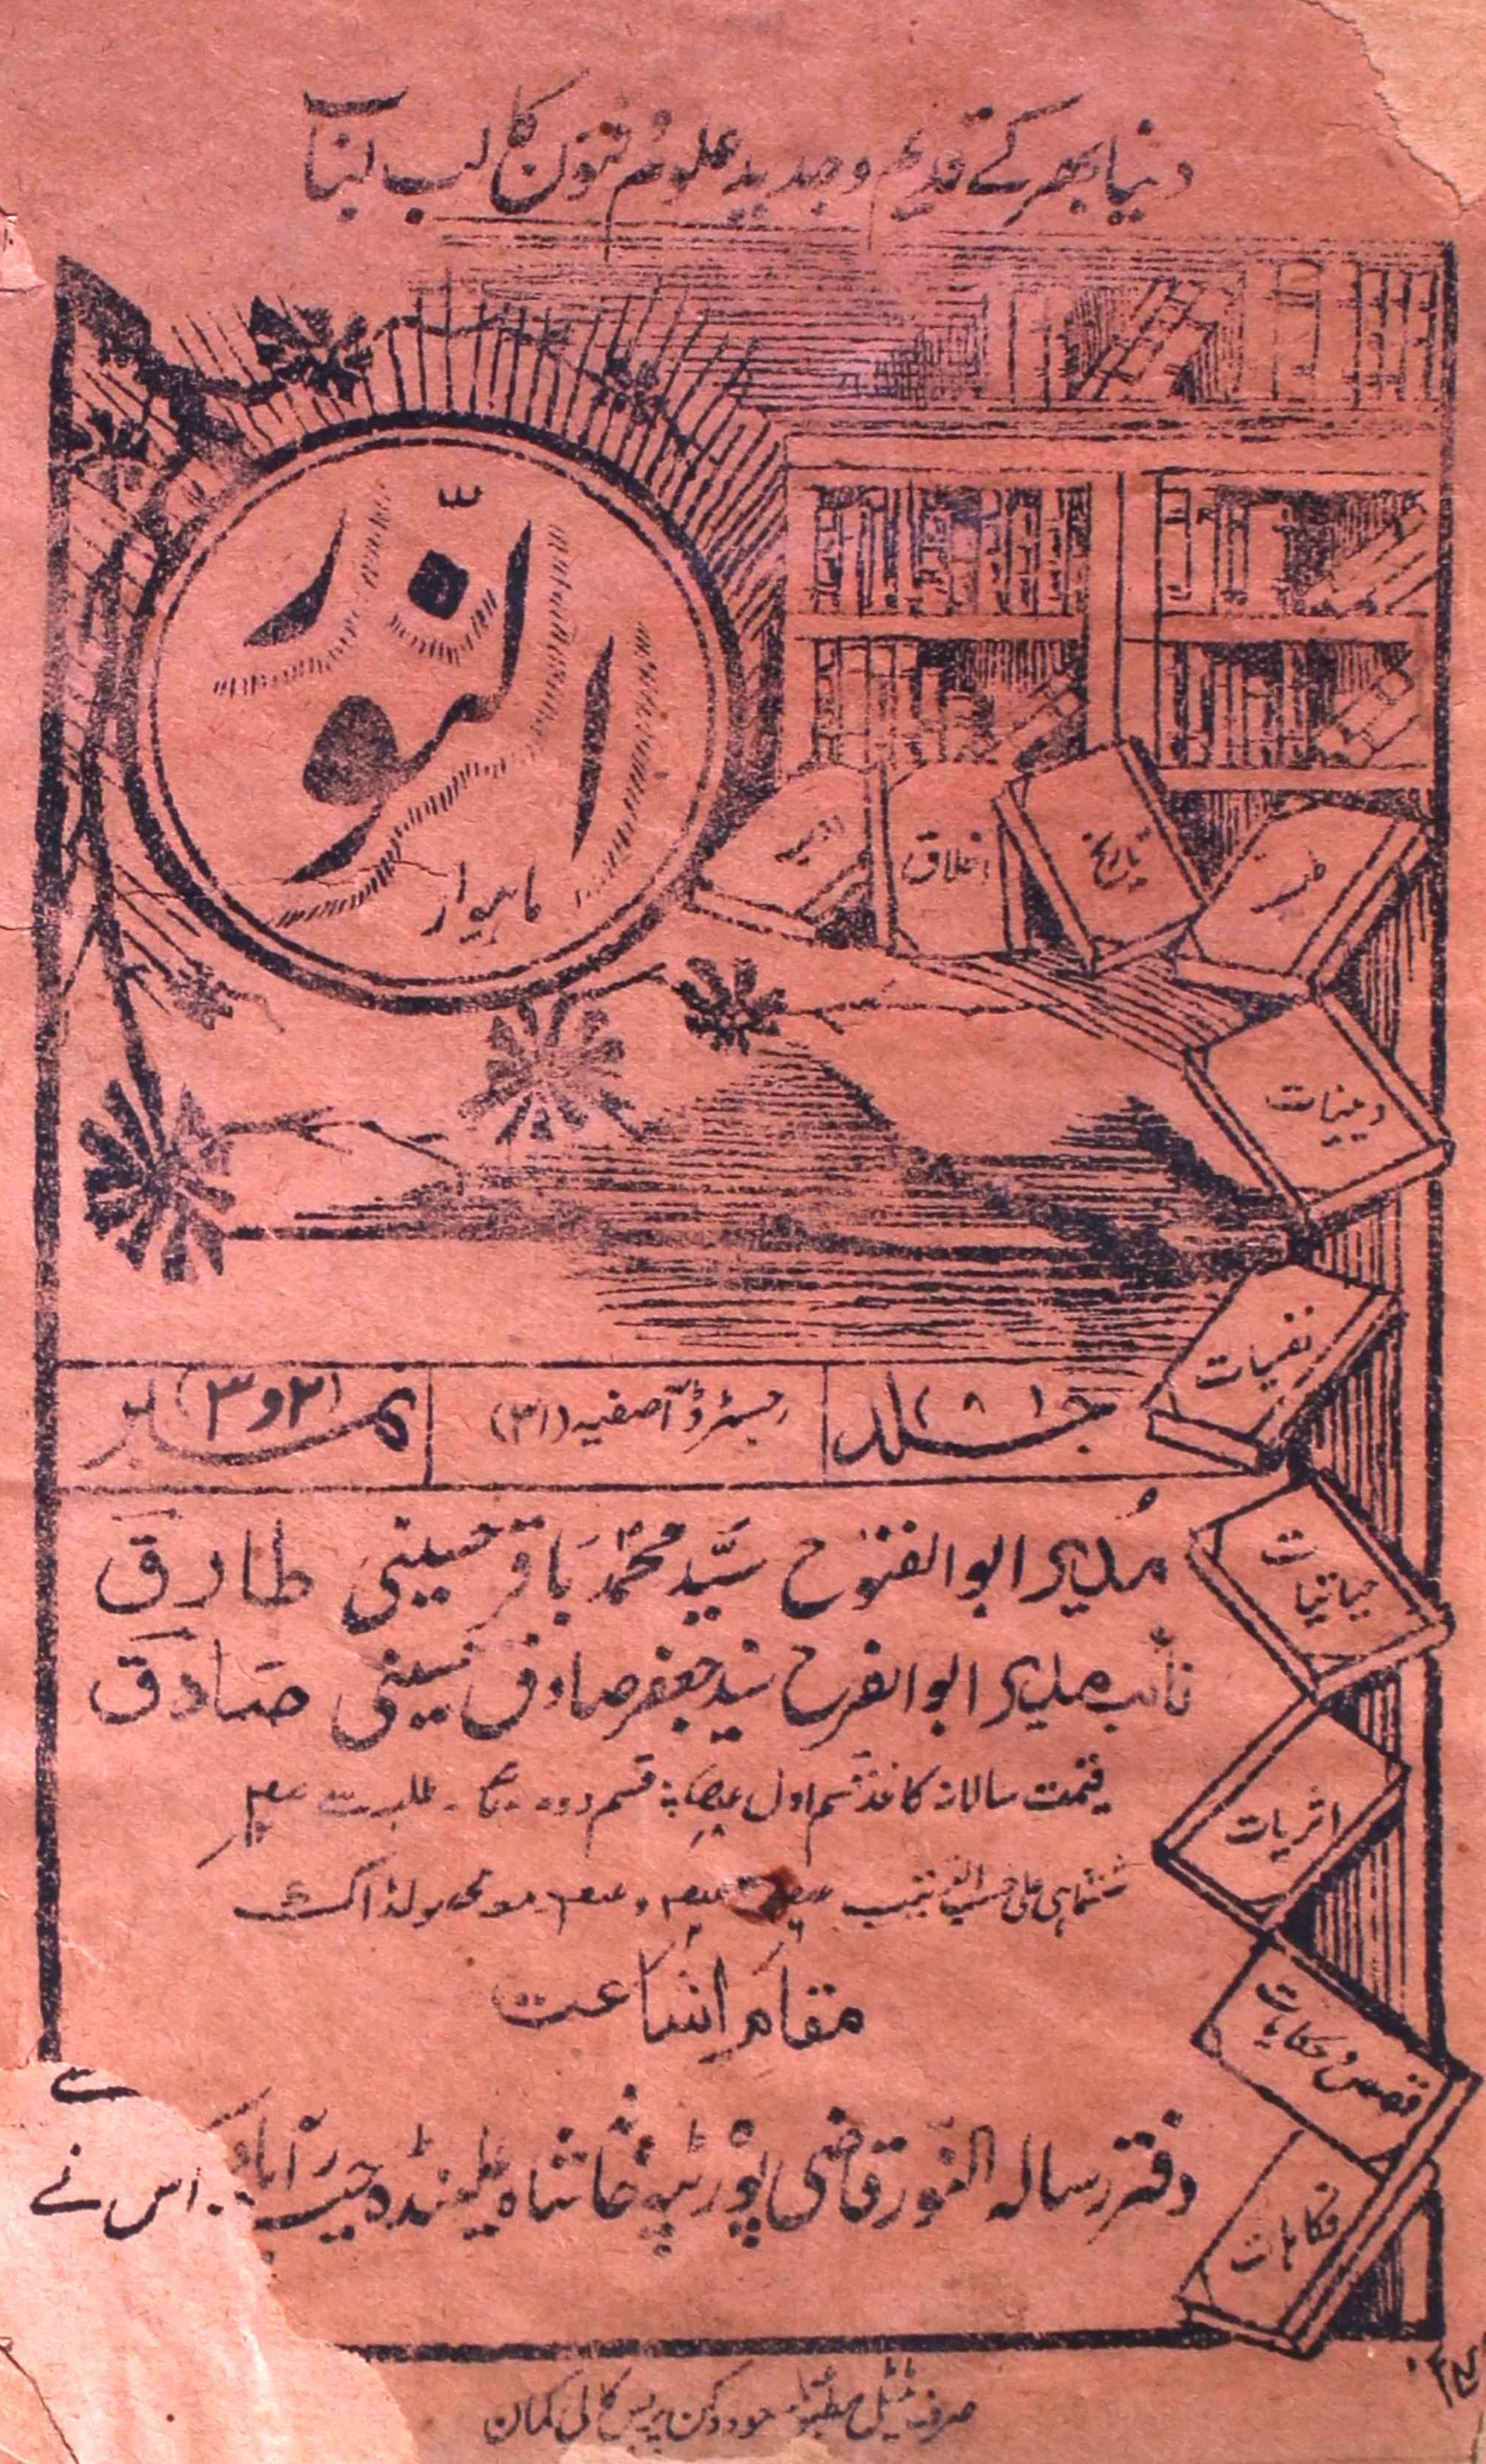 دنیا بھر کے قدیم و جدید علوم فنون کا لب لباب
النّور
ماہوار
ادب
اخلاق
تاریخ
طب
دینیات
نفسیات
حیاتیات
اثریات
قصص و حکایات
فکاہات
جلد (۸)
رجسٹرڈ آصفیہ (۳۱)
نمبر (۲ و ۳)
مُدیر ابو الفتوح سیّد محمّد باقر حسینی طارق
نائب مدیر ابو الفرح سید جعفر صادق حسینی صادق
قیمت سالانہ کاغذ قسم اول قسم دوم طلبہ سے
ششماہی علی
مقام اشاعت
دفتر رسالہ النور قاضی پورٹپہ خانہ شاہ علی بنڈہ حیدرآباد
سے
اس نے
صرف ٹیٹل مطبوعہ دکن پریس کالی کمان